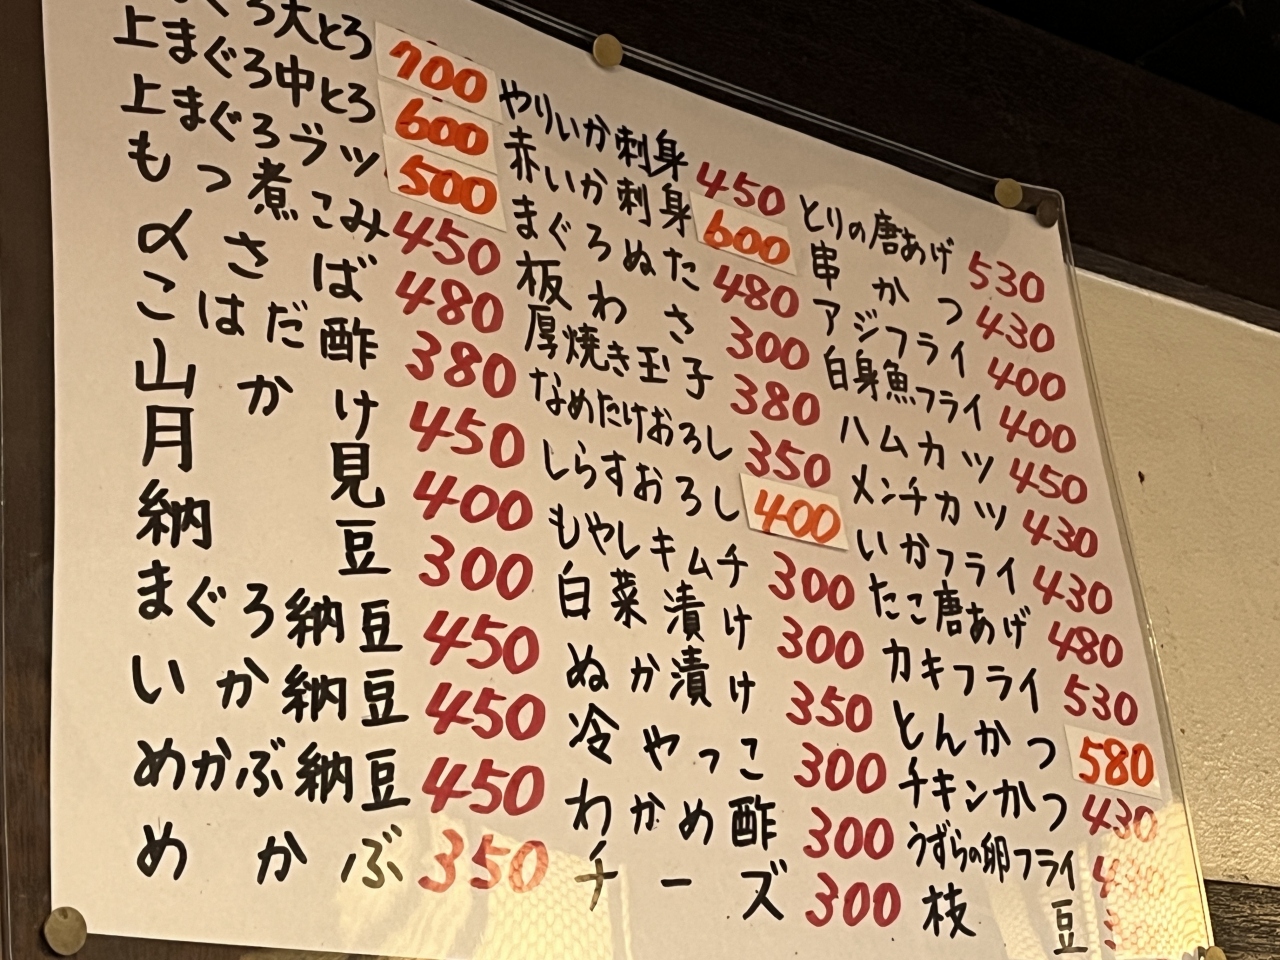 ぐろ大とろ 700
上まぐろ中とろ 600
上まぐろブツ 500
もつ煮こみ 450
〆さば 480
こはだ酢 380
山かけ 450
月見 400
納豆 300
まぐろ納豆 450
いか納豆 450
めかぶ納豆 450
めかぶ 350
やりいか刺身 450
赤いか刺身 600
まぐろぬた 480
板わさ 300
厚焼き玉子 380
なめたけおろし 350
しらすおろし 400
もやしキムチ 300
白菜漬け 300
ぬか漬け 350
冷やっこ 300
わかめ酢 300
チーズ 300
とりの唐あげ 530
串かつ 430
アジフライ 400
白身魚フライ 400
ハムカツ 450
メンチカツ 430
いかフライ 430
たこ唐あげ 480
カキフライ 530
とんかつ 580
チキンかつ 430
うずらの卵フライ
枝豆